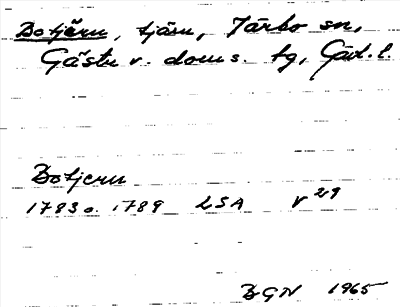 Botjern, tjärn, Järbo sn,
Gästr. v. doms. tg, Gävl. l.
Botjern
1783 o. 1789 LSA V 29
BGN 1965